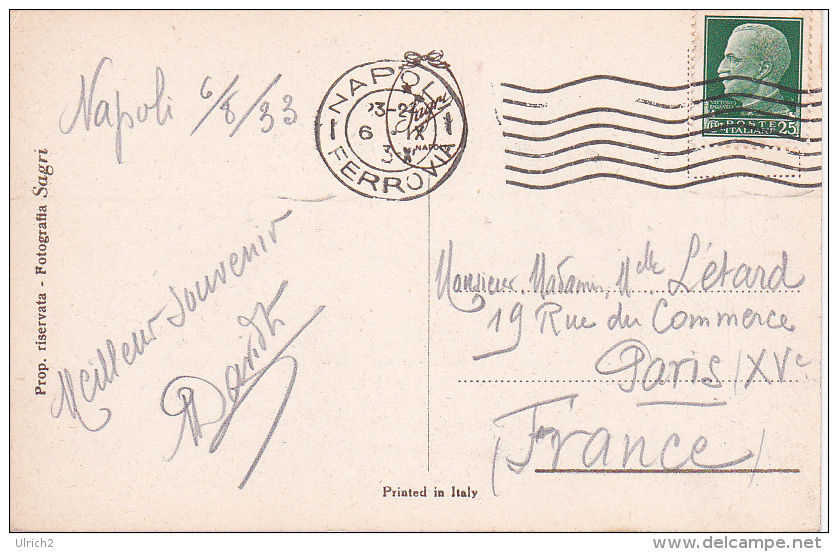 Napoli 6/8/33
NAPOLI
23-24
6 IX
FERROVIA
Sagri
NAPOLI
VITTORIO
POSTE
ITALIANE
25
Prop. riservata - Fotografia Sagri
Meilleur Souvenir
Monsieur, Madame, Mlle Létard
19 Rue du Commerce
Paris (XVe
(France)
Printed in Italy
©Ulrich2
www.delcampe.net